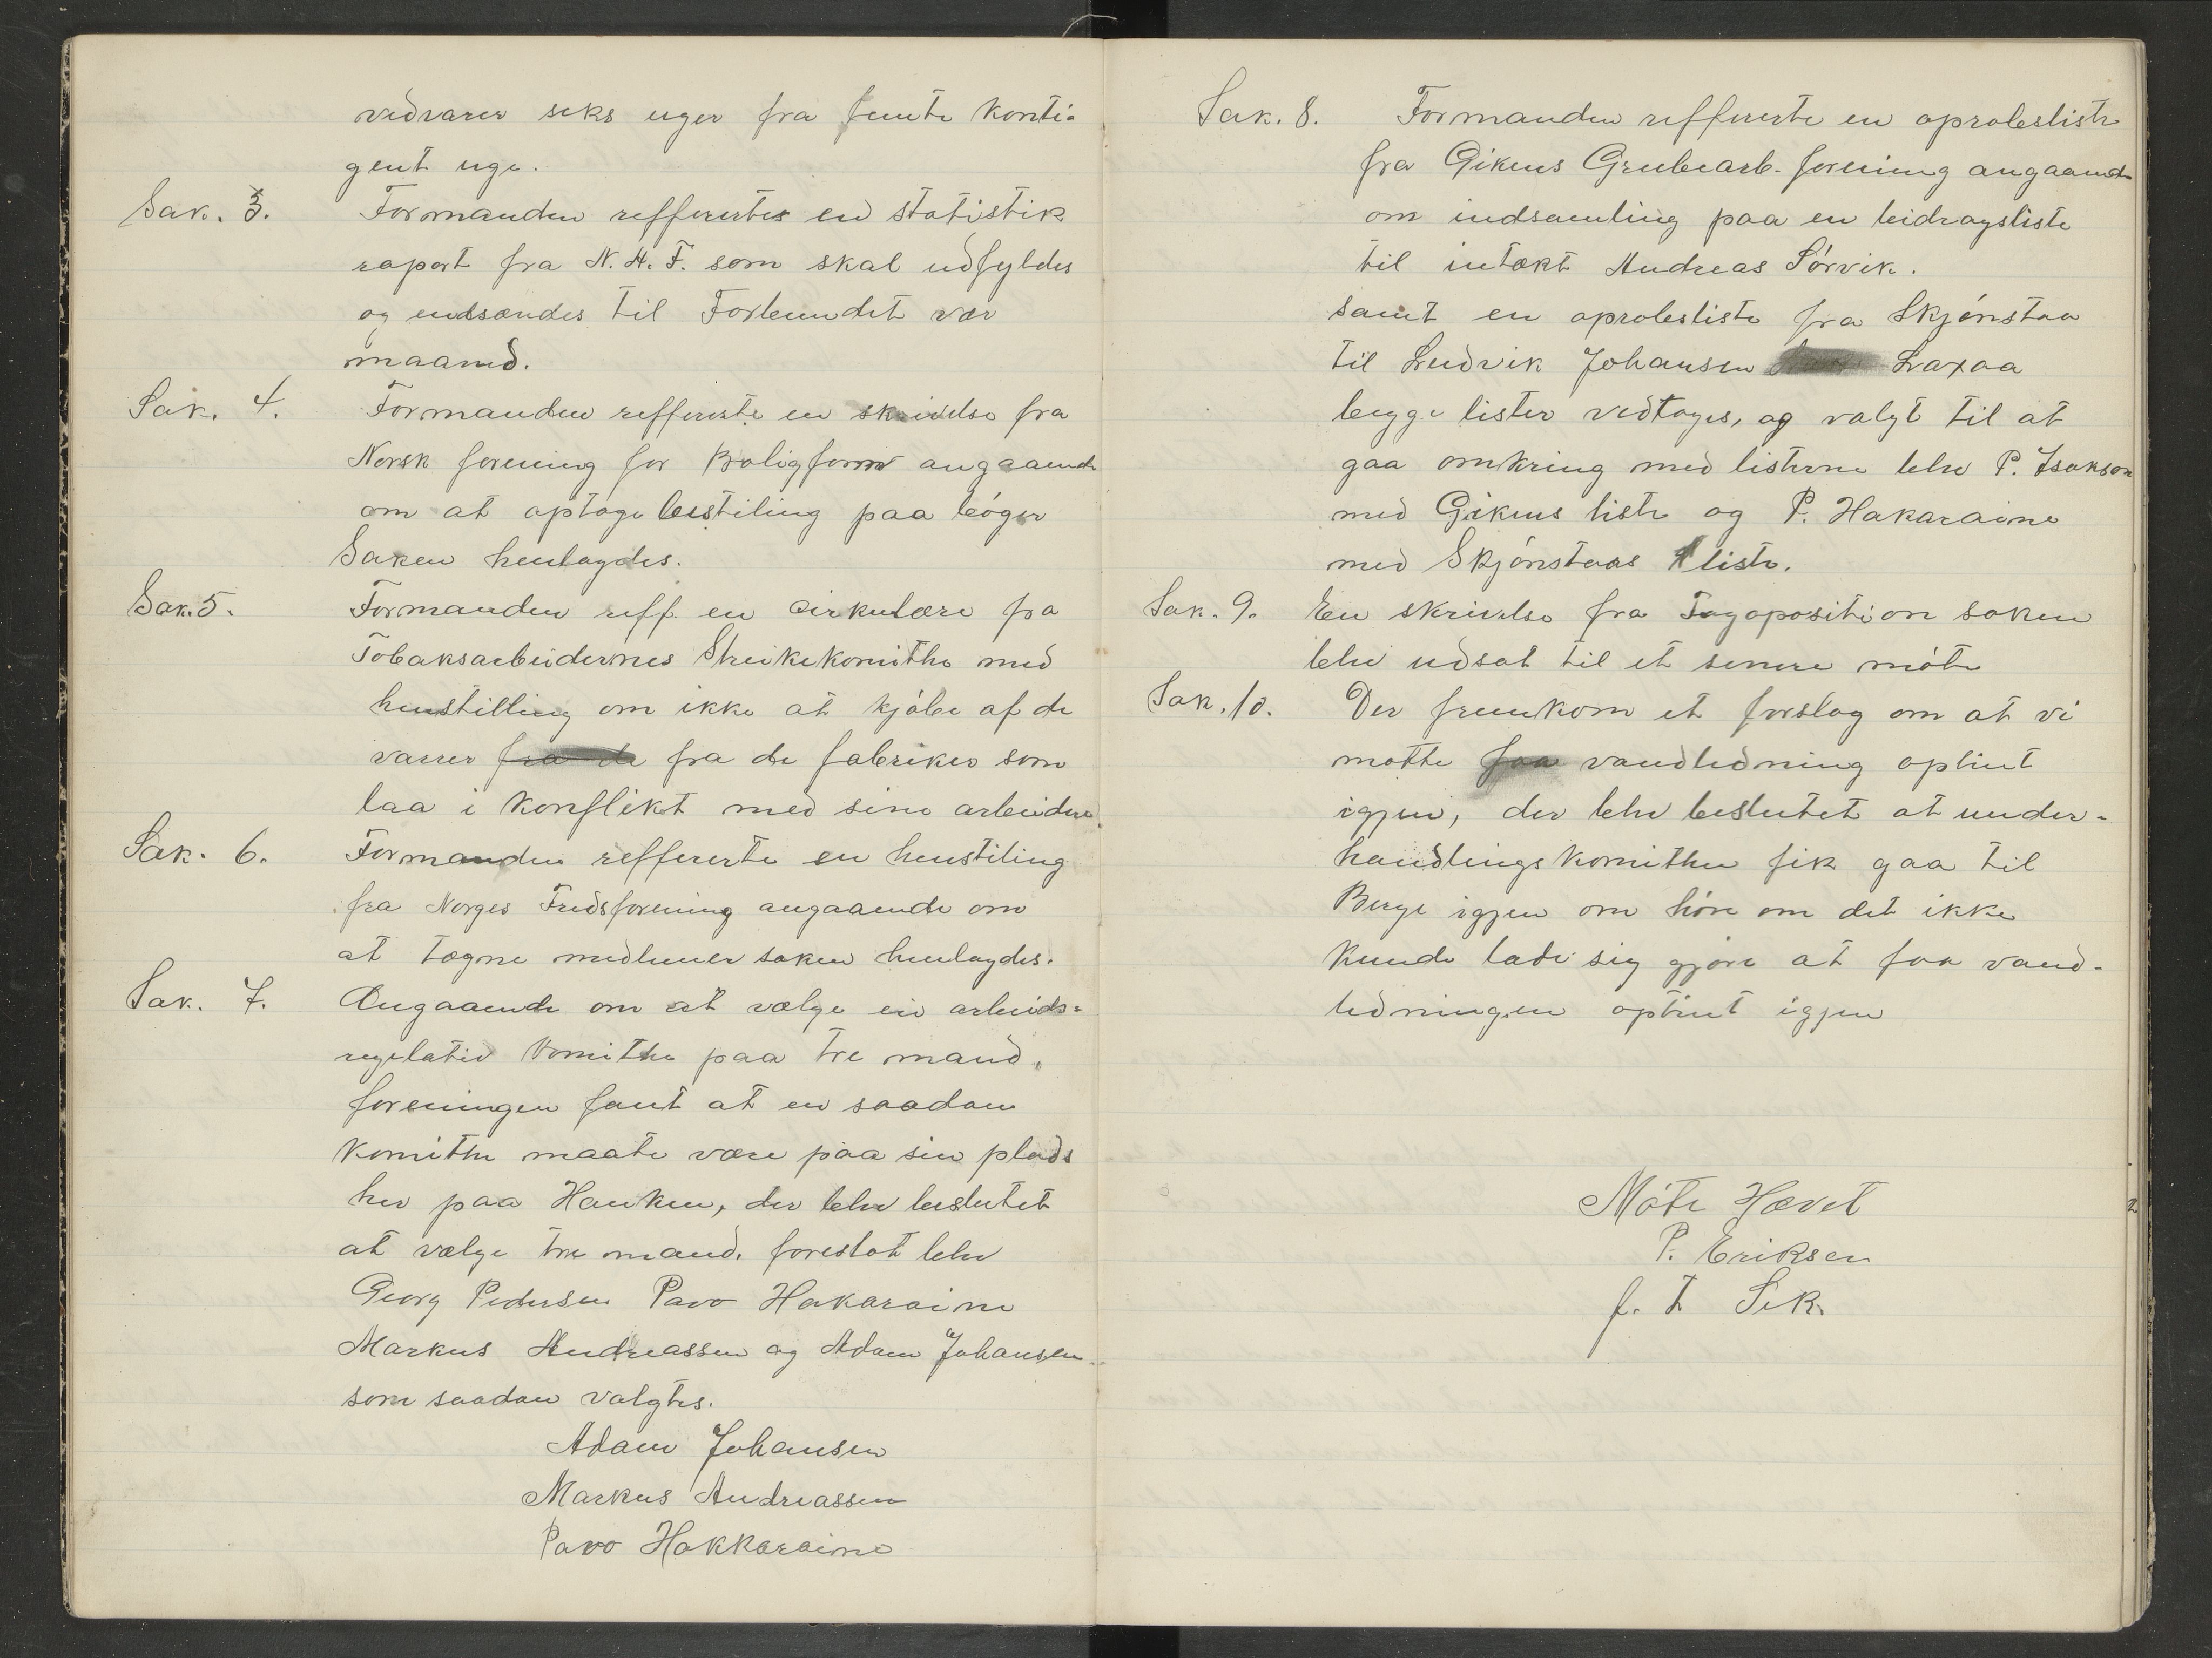 vedvarer seks uger fra femte Konti-
gent uge.
Sak. 3. Formanden refferertes en statistik
raport fra N. A. F. som skal udfyldes
og endsændes til Forbundet vær
maaned.
Sak. 4. Formanden reffererte en skrivelse fra
Norsk forening for Boligform angaaende
om at optage bestiling paa bøger
Saken henlagdes.
Sak. 5. Formanden reff. en cirkulære fra
Tobaksarbeidernes Streikekomithe med
henstilling om ikke at kjøbe af de
varrer fra de fra de fabriker som
laa i Konflikt med sine arbeidere
Sak. 6. Formanden reffererte en henstiling
fra Norges Fredsforening angaaende om
at tægne medlemer saken henlagdes.
Sak. 7. Angaaende om at vælge en arbeids-
regelativ Komithe paa tre mand,
foreningen fant at en saadan
Komithe maate være paa sin plads
her paa Hanken, der blev besluttet
at vælge tre mand. foreslot blev
Georg Pedersen Pavo Hakaraine
Markus Andreassen og Adam Johansen
som saadan valgtes.
Adam Johansen
Markus Andreassen
Pavo Hakkaraine
Sak. 8. Formanden reffererte en oprobsliste
fra Gikens Grubearb. forening angaaende
om indsamling paa en bidragsliste
til intækt Andreas Sørvik.
samt en oprobsliste fra Skjønstaa
til Ludvik Johansen Laxaa
begge lister vedtoges, og valgt til at
gaa omkring med listerne blev P. Isakson
med Gikens liste og P. Hakaraine
med Skjønstaas liste.
Sak. 9. En skrivelse fra Fagoposition saken
blev udsat til et senere møte
Sak. 10. Der fremkom et forslag om at vi
motte faa vandledning optint
igjen, der blev beslutet at under-
handlingskomithen fik gaa til
Berge igjen om høre om det ikke
kunde lade sig gjøre at faa vand-
ledningen optint igjen
Møte Hævet
P. Eriksen
f. t Sek.